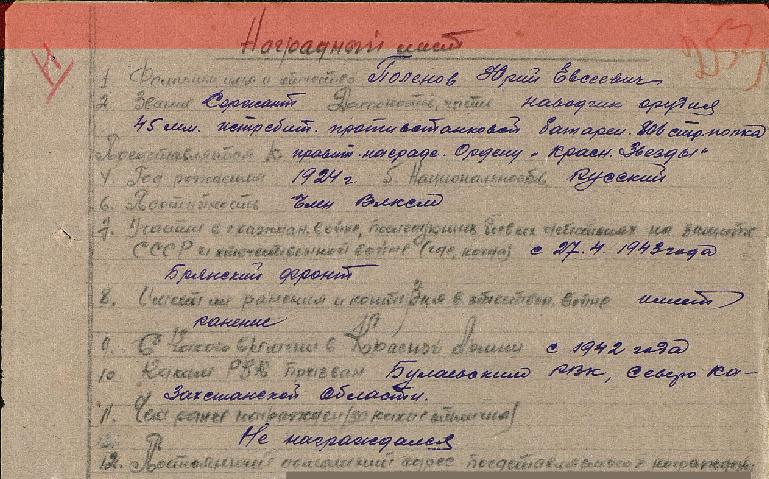 Наградный лист
253
1. Фамилия имя и отчество Поленов Юрий Евсеевич
2. Звание Сержант Должность, часть наводчик орудия
45 мм. истребит. противотанковой батареи. 806 стр. полка
Представляется к правит. награде. Ордену „Красн. Звезды"
4. Год рождения 1924 г. 5. Национальность Русский
6. Партийность Член Влксм
7. Участие в граждан. войне, последующих боевых действиях по защите
СССР и отечественной войне (где, когда) с 27.4.1943 года
Брянский фронт
8. Имеет ли ранения и контузия в отествен. войне имеет
ранение
9. С какого времени в Красной Армии с 1942 года
10. Каким РВК призван Булаевским РВК, Северо Ка-
захстанской области.
11. Чем ранее награжден (за какие отличия)
Не награждался
12. Постоянный домашний адрес представляемого к награжден